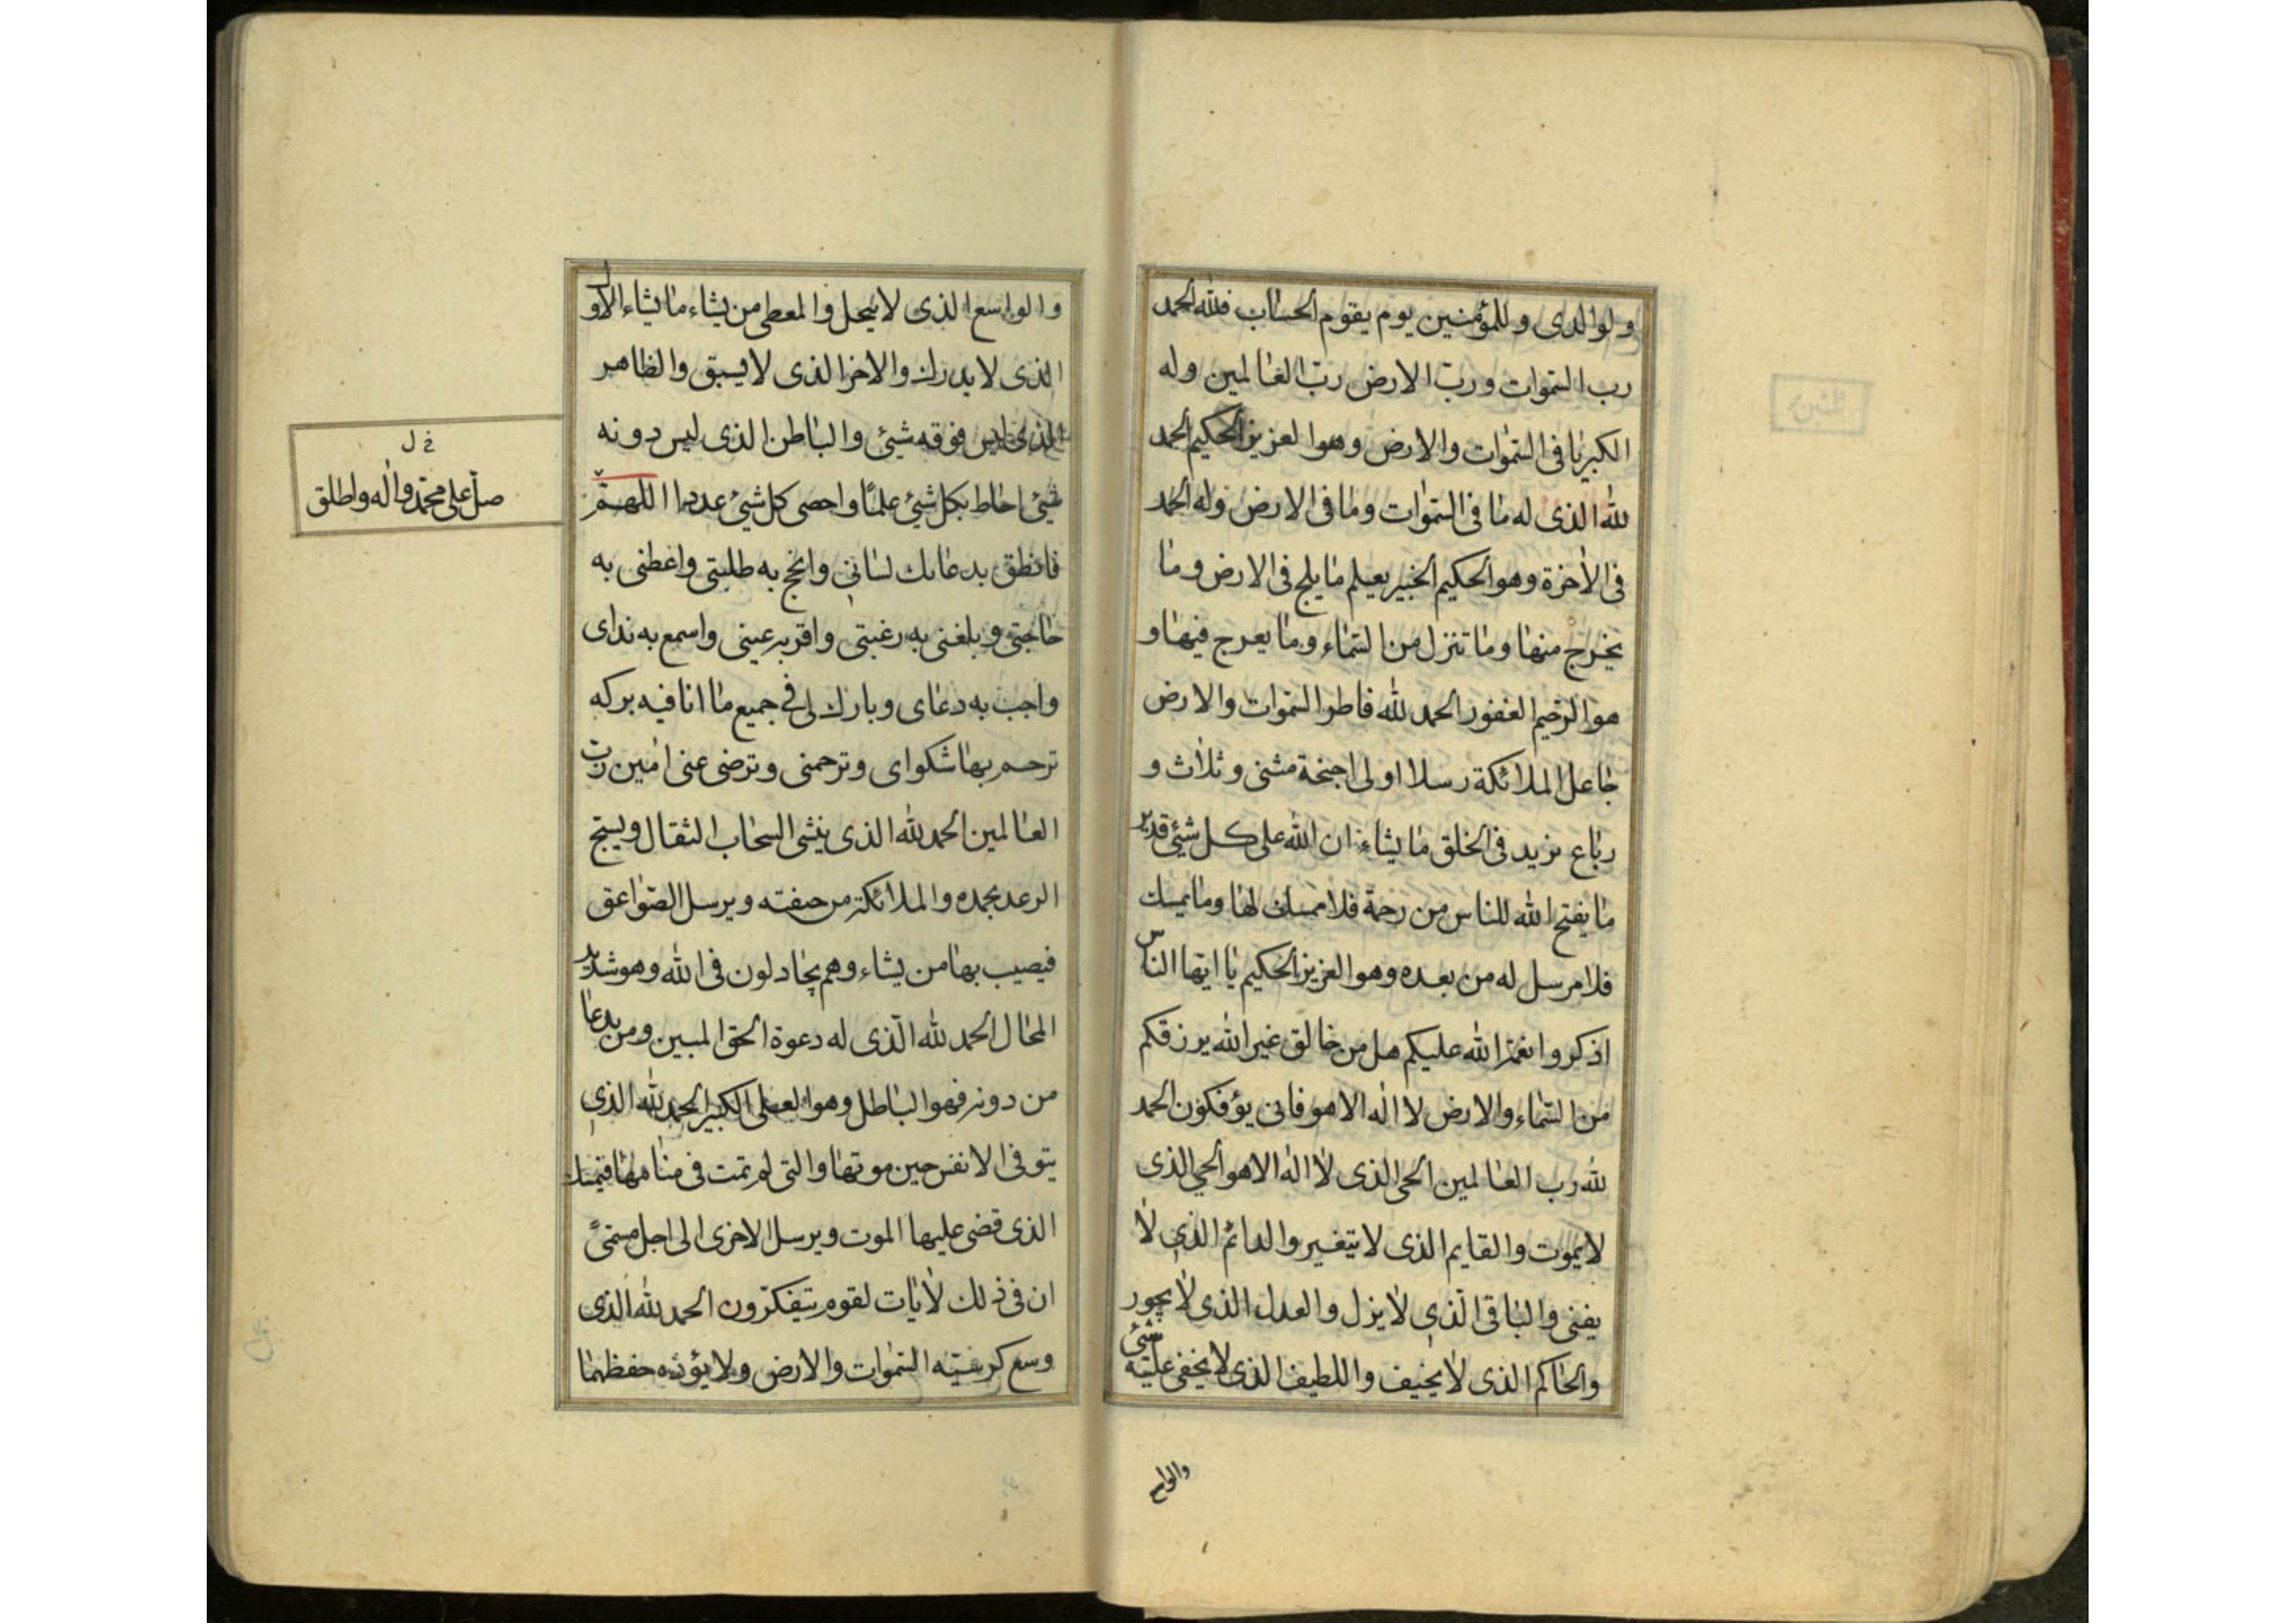 ولوالدی وللمؤمنین یوم یقوم الحساب فلله الحمد
رب السموات ورب الارض رب العالمین وله
الکبریا فی السموات والارض وهو العزیز الحکیم الحمد
لله الذی له ما فی السموات وما فی الارض وله الحمد
فی الاخرة وهو الحکیم الخبیر یعلم ما یلج فی الارض وما
یخرج منها وما تنزل من السماء وما یعرج فیها و
هو الرحیم الغفور الحمد لله فاطر السموات والارض
جاعل الملائکة رسلا اولی اجنحة مثنی وثلاث و
رباع یزید فی الخلق ما یشاء ان الله علی کل شیئ قدیر
ما یفتح الله للناس من رحمة فلا ممسك لها وما یمسك
فلا مرسل له من بعده وهو العزیز الحکیم یا ایها الناس
اذکروا نعمة الله علیکم هل من خالق غیر الله یرزقکم
من السماء والارض لا اله الا هو فانی یؤفکون الحمد
لله رب العالمین الحی الذی لا اله الا هو الحی الذی
لا یموت والقایم الذی لا یتغیر والدائم الذی لا
یفنی والباقی الذی لا یزل والعدل الذی لا یجور
والحاکم الذی لا یحیف واللطیف الذی لا یخفی علیه شیئ
والواسع
والواسع الذی لا یبخل والمعطی من یشاء ما یشاء الاول
الذی لا یدرك والاخر الذی لا یسبق والظاهر
الذی لیس فوقه شیئ والباطن الذی لیس دونه
شیئ احاط بکل شیئ علما واحصی کل شیئ عددا اللهم
خ ل
صل علی محمد واله واطلق
فانطق بدعائك لسانی وانجح به طلبتی واعطنی به
حاجتی وبلغنی به رغبتی واقر به عینی واسمع به ندای
واجب به دعای وبارك لی فی جمیع ما انا فیه برکه
ترحم بها شکوای وترحمنی وترضی عنی امین رب
العالمین الحمد لله الذی ینشی السحاب الثقال ویسبح
الرعد بحمده والملائکة من خیفته ویرسل الصواعق
فیصیب بها من یشاء وهم یجادلون فی الله وهو شدید
المحال الحمد لله الذی له دعوة الحق المبین ومن یدعا
من دونه فهو الباطل وهو العلی الکبیر الحمد لله الذی
یتوفی الانفس حین موتها والتی لم تمت فی منامها فیمسك
الذی قضی علیها الموت ویرسل الاخری الی اجل مسمیً
ان فی ذلك لایات لقوم یتفکرون الحمد لله الذی
وسع کرسیه السموات والارض ولا یؤده حفظهما